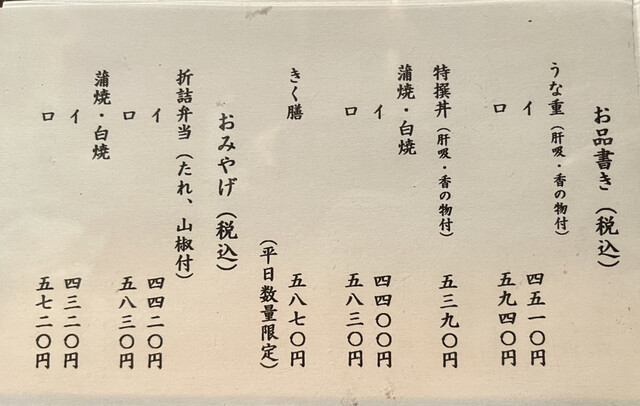 お品書き（税込）
うな重（肝吸・香の物付）
イ 四五一〇円
ロ 五九四〇円
特撰丼（肝吸・香の物付） 五三九〇円
蒲焼・白焼
イ 四四〇〇円
ロ 五八三〇円
きく膳 五八七〇円
（平日数量限定）
おみやげ（税込）
折詰弁当（たれ、山椒付）
イ 四四二〇円
ロ 五八三〇円
蒲焼・白焼
イ 四三二〇円
ロ 五七二〇円